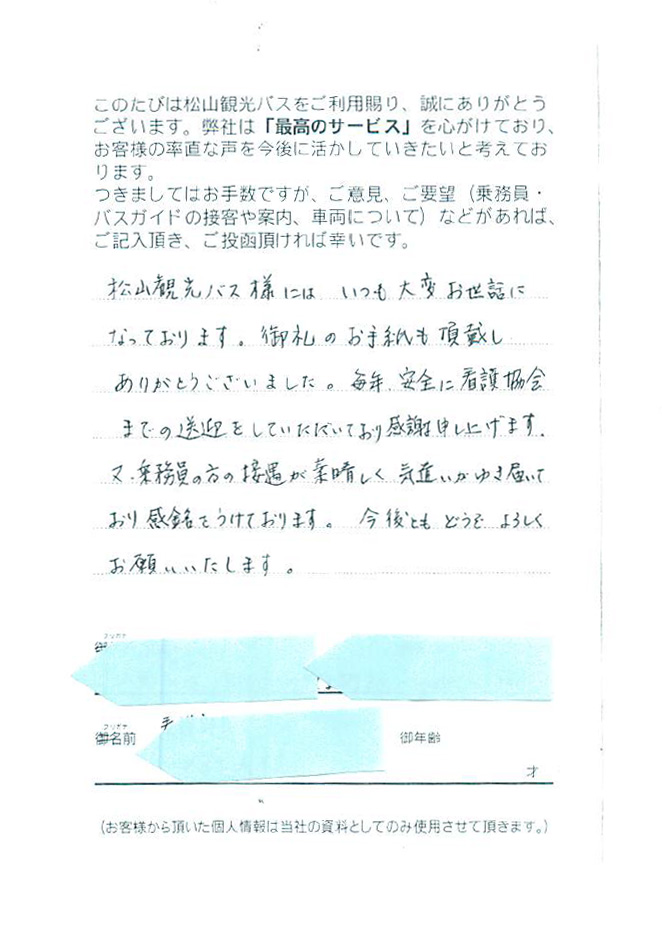 このたびは松山観光バスをご利用賜り、誠にありがとう
ございます。弊社は「最高のサービス」を心がけており、
お客様の率直な声を今後に活かしていきたいと考えてお
ります。
つきましてはお手数ですが、ご意見、ご要望（乗務員・
バスガイドの接客や案内、車両について）などがあれば、
ご記入頂き、ご投函頂ければ幸いです。
松山観光バス様には いつも大変お世話に
なっております。御礼のお手紙も頂戴し
ありがとうございました。毎年、安全に看護協会
までの送迎をしていただいており感謝申し上げます。
又、乗務員の方の接遇が素晴しく気遣いがゆき届いて
おり感銘をうけております。今後ともどうぞよろしく
お願いいたします。
フリガナ
フリガナ
御名前
御年齢
才
（お客様から頂いた個人情報は当社の資料としてのみ使用させて頂きます。）